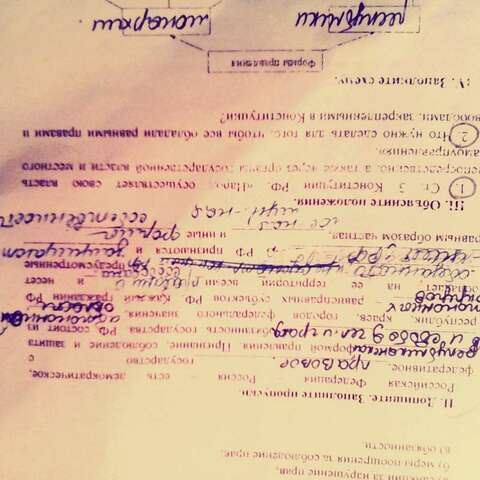 за нарушение прав,
б) меры поощрения за соблюдение прав,
в) обязанности.
II. Допишите. Заполните пропуски.
Российская Федерация – Россия есть демократическое,
федеративное правовое государство с
республиканской формой правления. Признание, соблюдение и защита
и свобод чел. и гражд обязанность государства. РФ состоит из
республик, краев, городов федерального значения, автономной области
автономных округов равноправных субъектов РФ. Каждый гражданин РФ
обладает на ее территории всеми правами и несет
свободами предусмотренные
в РФ признаются и защищаются
равным образом частная, гос-ная и иные формы
муниц-ная собственности
III. Объясните положения.
1. Ст. 3 Конституции РФ «Народ осуществляет свою власть
непосредственно, а также через органы государственной власти и местного
самоуправления».
2. Что нужно сделать для того, чтобы все обладали равными правами и
свободами, закрепленными в Конституции?
IV. Заполните схему.
Формы правления
монархии республики